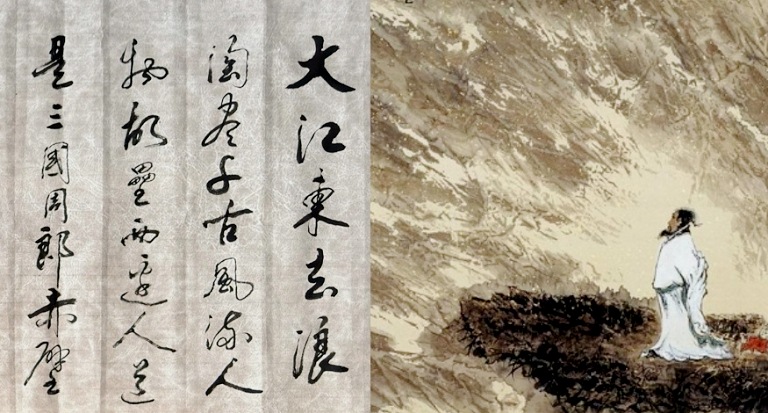 大江東去浪
淘盡千古風流人
物故壘西邊人道
是三國周郎赤壁